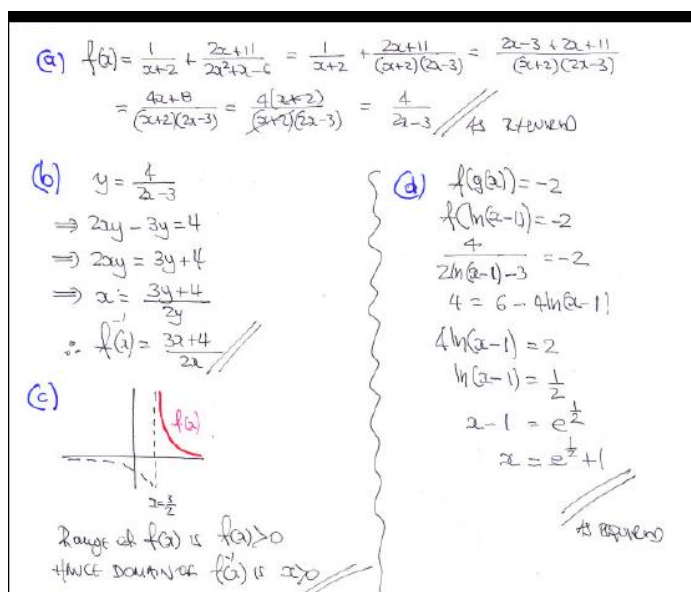 (a) f(x) = 1/(x+2) + (2x+11)/(2x²+x-6) = 1/(x+2) + (2x+11)/((x+2)(2x-3)) = (2x-3+2x+11)/((x+2)(2x-3))
= (4x+8)/((x+2)(2x-3)) = 4(x+2)/((x+2)(2x-3)) = 4/(2x-3) // As REQUIRED
(b) y = 4/(2x-3)
⇒ 2xy - 3y = 4
⇒ 2xy = 3y+4
⇒ x = (3y+4)/(2y)
∴ f⁻¹(x) = (3x+4)/(2x) //
(c)
f(x)
x=3/2
Range of f(x) is f(x)>0
HENCE DOMAIN OF f⁻¹(x) is x>0
(d) f(g(x)) = -2
f(ln(x-1)) = -2
4/(2ln(x-1)-3) = -2
4 = 6 - 4ln(x-1)
4ln(x-1) = 2
ln(x-1) = 1/2
x-1 = e^(1/2)
x = e^(1/2)+1
As REQUIRED